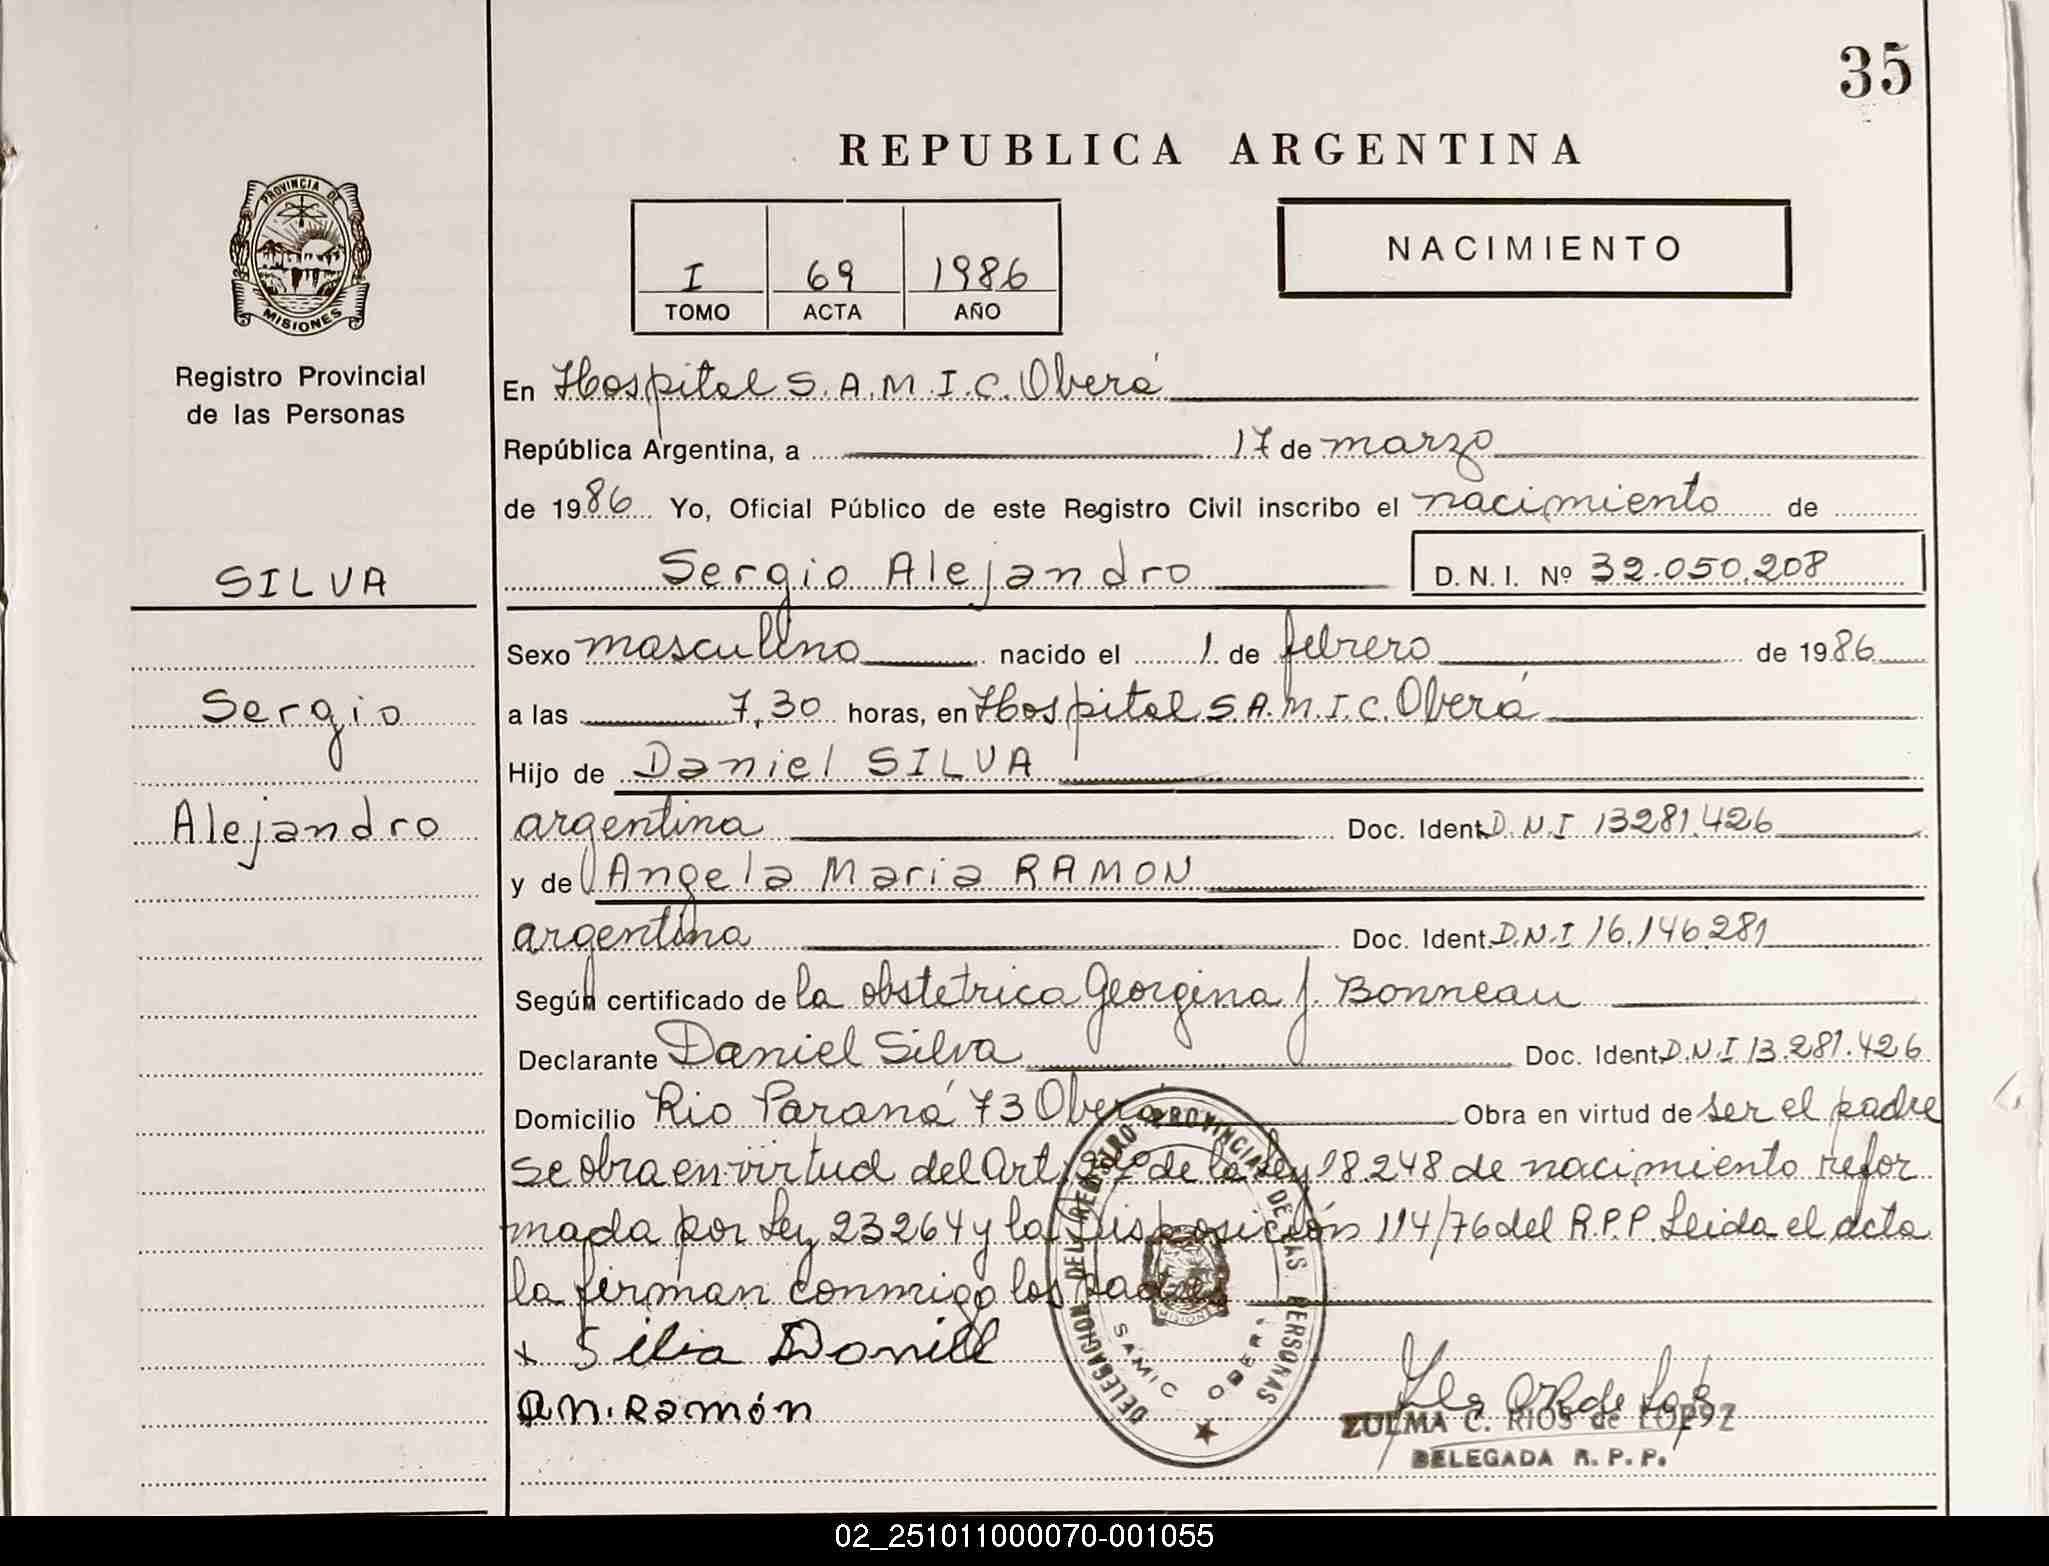 35
REPUBLICA ARGENTINA
PROVINCIA DE
MISIONES
I 69 1986
TOMO ACTA AÑO
NACIMIENTO
Registro Provincial
de las Personas
En Hospital S.A.M.I.C. Oberá
República Argentina, a 17 de marzo
de 1986 Yo, Oficial Público de este Registro Civil inscribo el nacimiento de
SILVA
Sergio Alejandro D. N. I. Nº 32.050.208
Sexo masculino nacido el 1 de febrero de 1986
Sergio
a las 7,30 horas, en Hospital S.A.M.I.C. Oberá
Hijo de Daniel SILVA
Alejandro
argentina Doc. Ident. D.N.I 13281.426
y de Angela Maria RAMON
argentina Doc. Ident. D.N.I 16.146.281
Según certificado de la obstetrica Georgina J. Bonneau
Declarante Daniel Silva Doc. Ident. D.N.I 13.281.426
Domicilio Rio Paraná 73 Oberá Obra en virtud de ser el padre
se obra en virtud del Art. de la Ley 18.248 de nacimiento refor
mada por Ley 23264 y la Disposición 114/76 del R.P.P. Leida el acta
la firman conmigo los padres
+ Silia Daniel
An. Ramón
DELEGACION DEL REGISTRO PROVINCIAL DE LAS PERSONAS
SAMIC OBERA
MISIONES
ZULMA C. RIOS de LOPEZ
DELEGADA R. P. P.
02_251011000070-001055